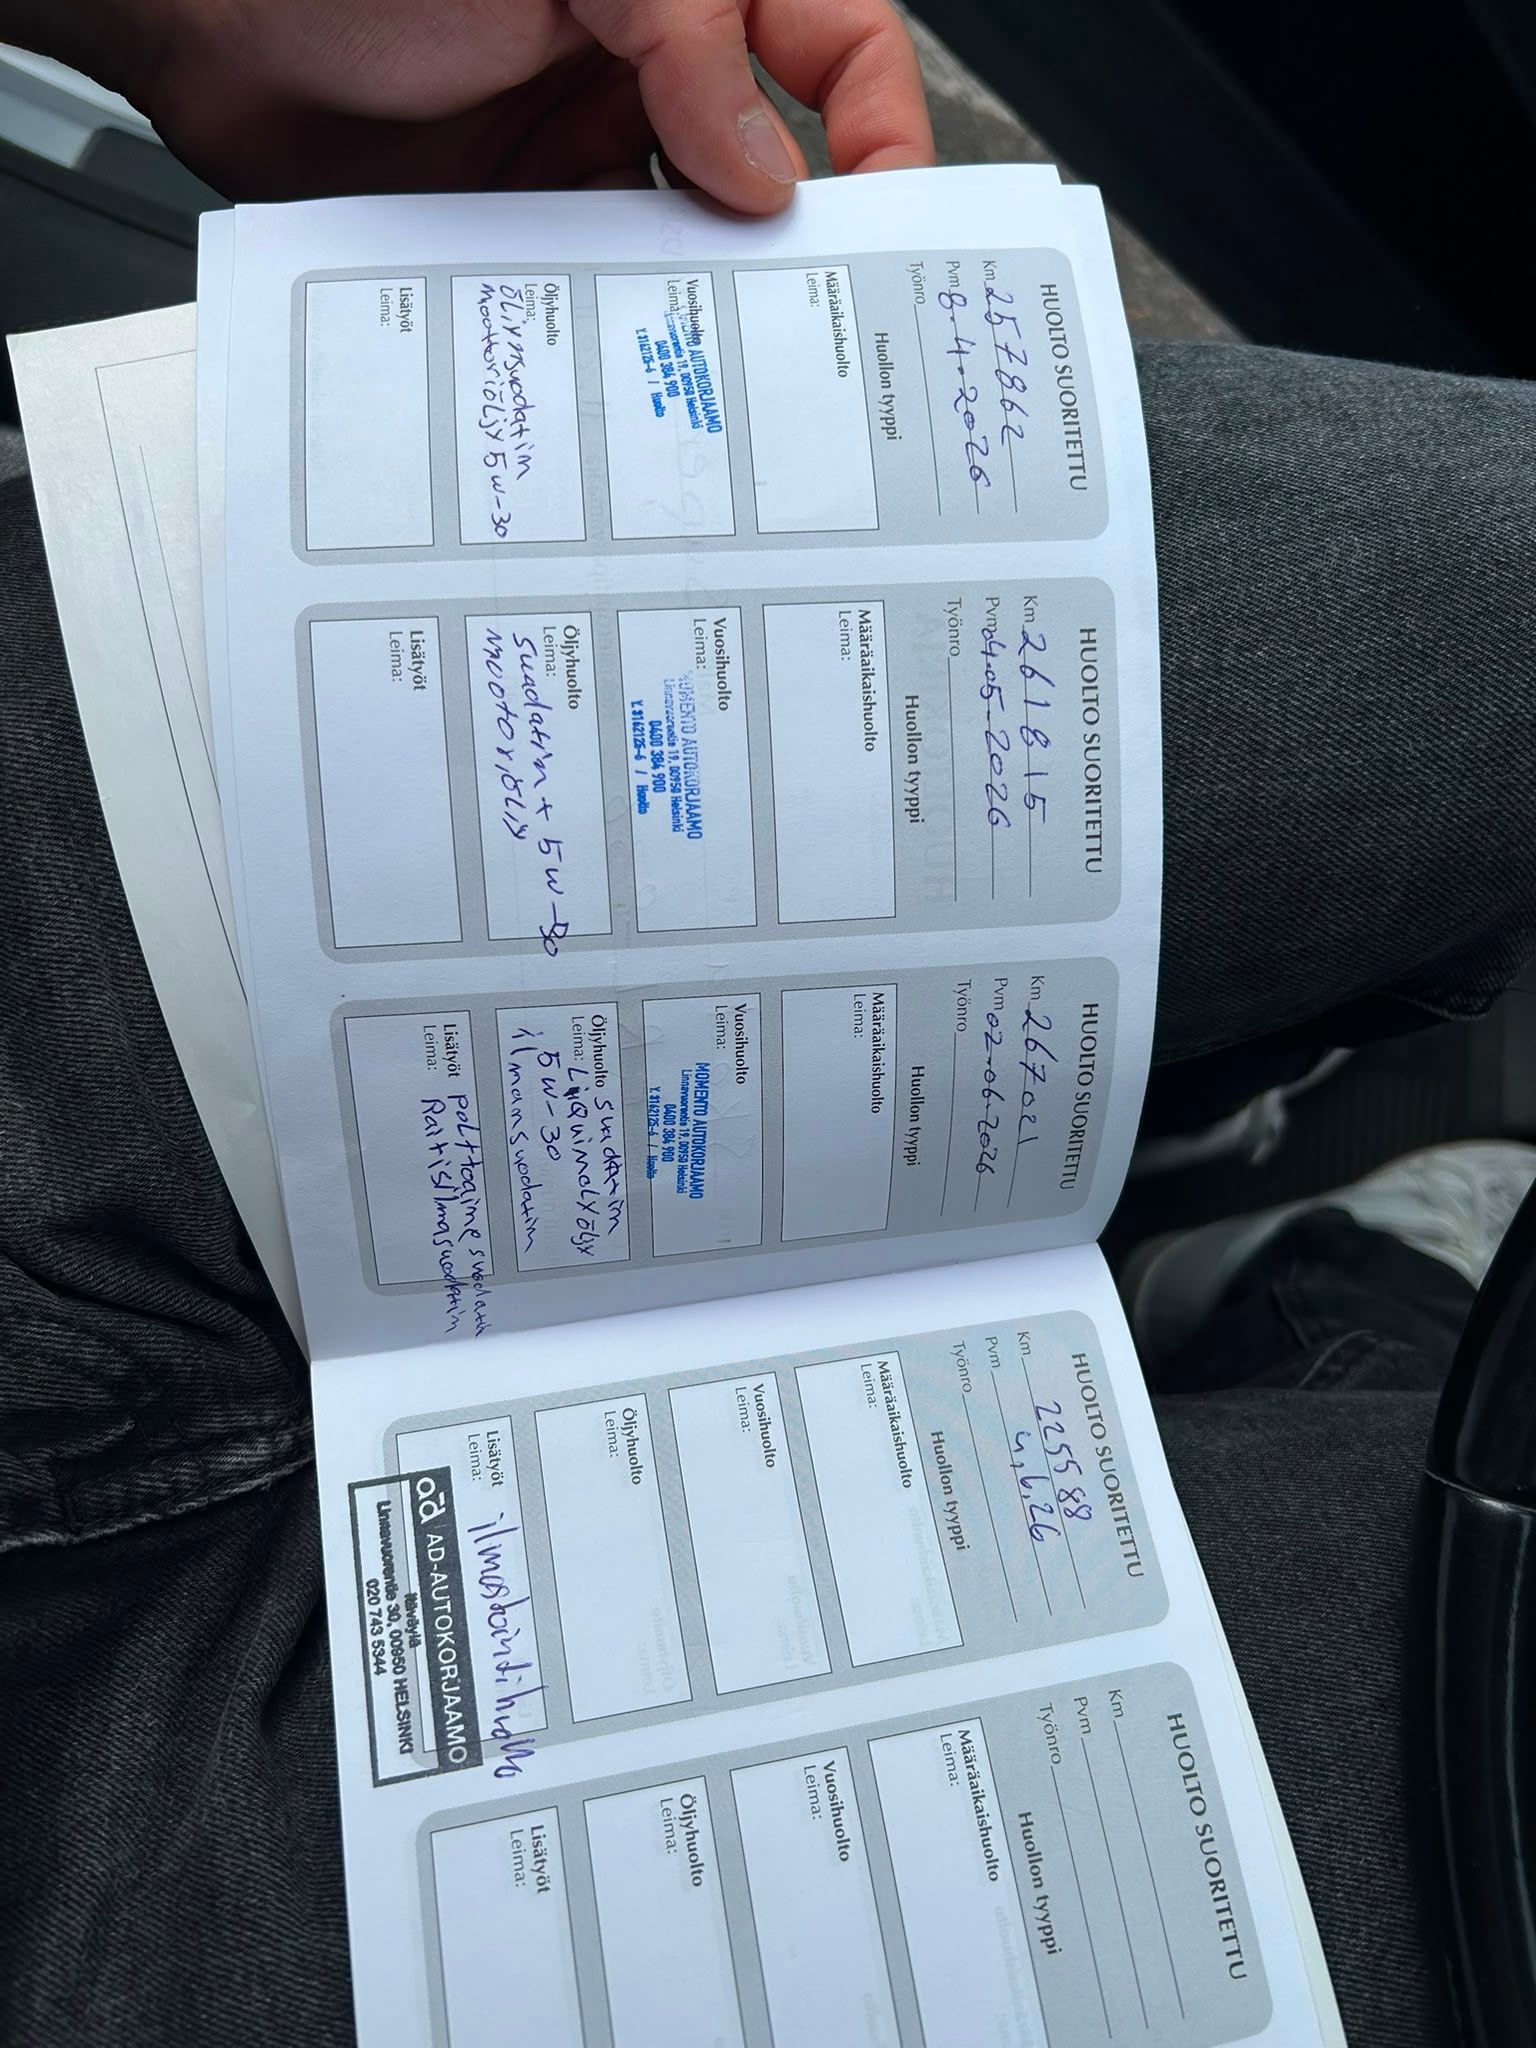 HUOLTO SUORITETTU
Km 257862
Pvm 8.4.2026
Työnro
Huollon tyyppi
Määräaikaishuolto
Leima:
Vuosihuolto
Leima:
AUTOKORJAAMO
Linnavuorentie 19, 00950 Helsinki
0400 384 900
Y. 3162125-6 / Huolto
Öljyhuolto
Leima:
Öljynsuodatin
moottoriöljy 5w-30
Lisätyöt
Leima:
HUOLTO SUORITETTU
Km 261815
Pvm 04.05-2026
Työnro
Huollon tyyppi
Määräaikaishuolto
Leima:
Vuosihuolto
Leima:
MOMENTO AUTOKORJAAMO
Linnavuorentie 19, 00950 Helsinki
0400 384 900
Y. 3162125-6 / Huolto
Öljyhuolto
Leima:
suodatin + 5w-30
Lisätyöt
Leima:
HUOLTO SUORITETTU
Km 267021
Pvm 02.06.2026
Työnro
Huollon tyyppi
Määräaikaishuolto
Leima:
Vuosihuolto
Leima:
MOMENTO AUTOKORJAAMO
Linnavuorentie 19, 00950 Helsinki
0400 384 900
Y. 3162125-6 / Huolto
Öljyhuolto suodatin
Leima: Liquimoly öljy
5w-30
ilmansuodatin
Lisätyöt polttoaine
Leima: Raitisilmasuodatin
HUOLTO SUORITETTU
Km 225588
Pvm 4.6.26
Työnro
Huollon tyyppi
Määräaikaishuolto
Leima:
Vuosihuolto
Leima:
Öljyhuolto
Leima:
Lisätyöt
Leima: ilmastointihuolto
ad AD-AUTOKORJAAMO
Itäväylä
Linnavuorentie 30, 00950 HELSINKI
020 743 5344
HUOLTO SUORITETTU
Km
Pvm
Työnro
Huollon tyyppi
Määräaikaishuolto
Leima:
Vuosihuolto
Leima:
Öljyhuolto
Leima:
Lisätyöt
Leima: